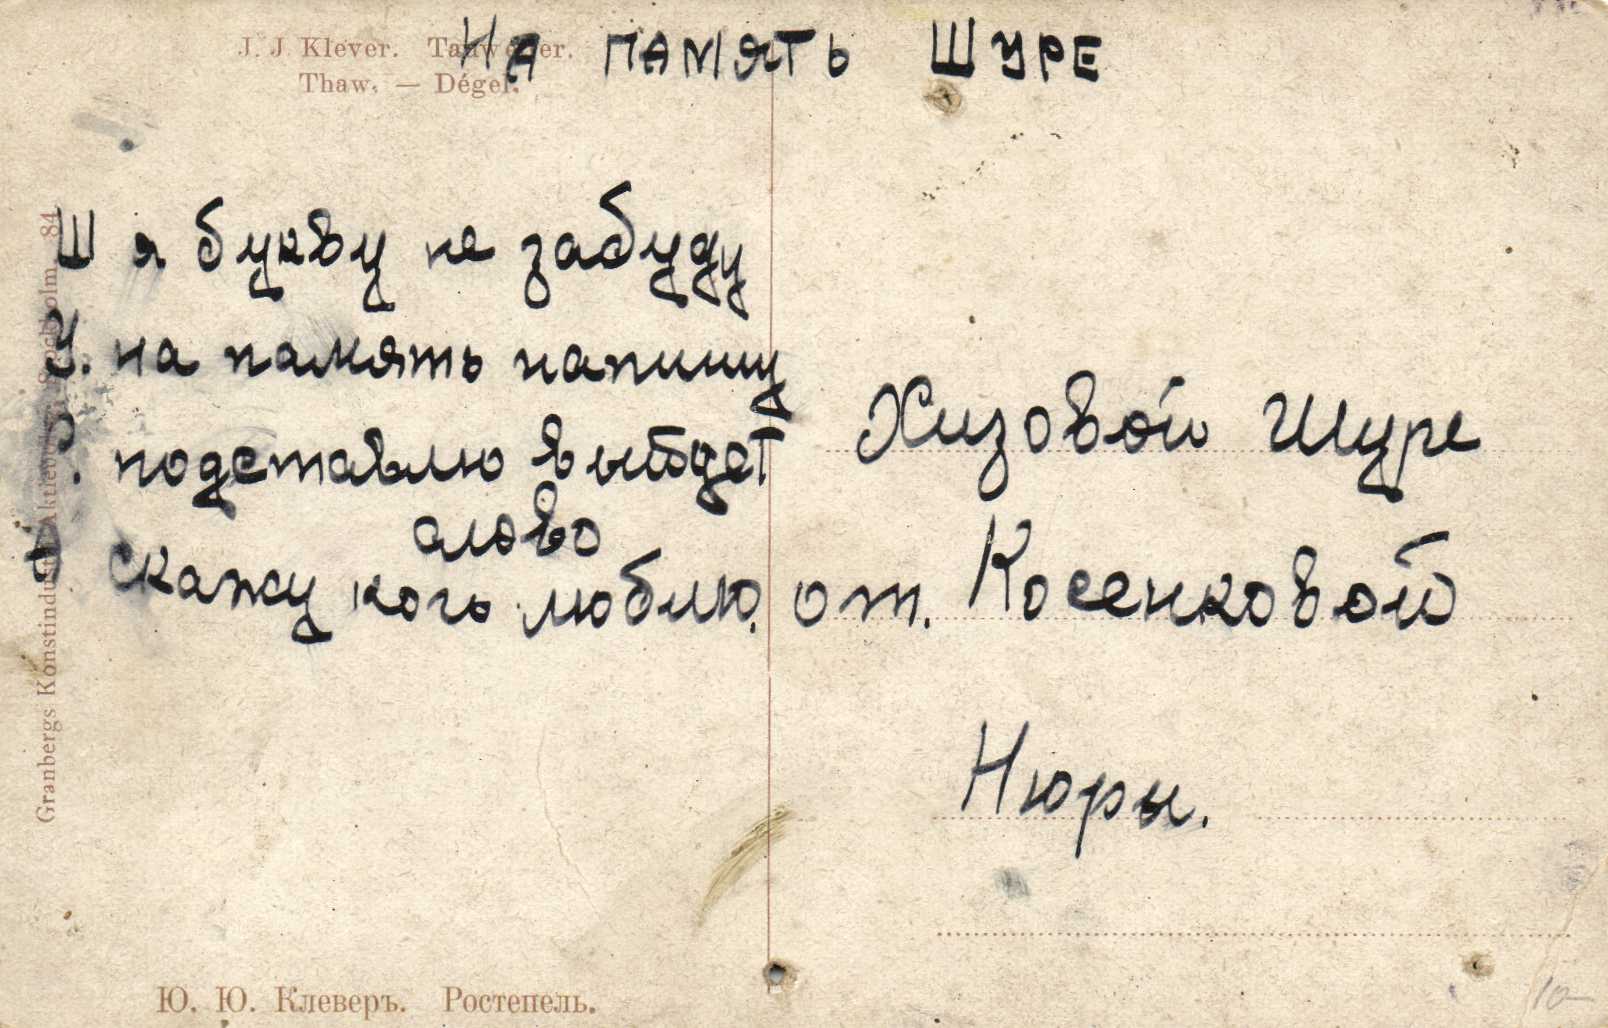 J. J Klever. Tauwetter.
На память Шуре
Thaw. — Dégel.
Ш я букву не забуду
У. на память напишу
Р. подставлю выйдет
слово
А скажу кого люблю.
Хизовой Шуре
от. Косенковой
Нюры.
Granbergs Konstindustri Aktiebolag Stockholm 84
Ю. Ю. Клеверъ. Ростепель.
10-